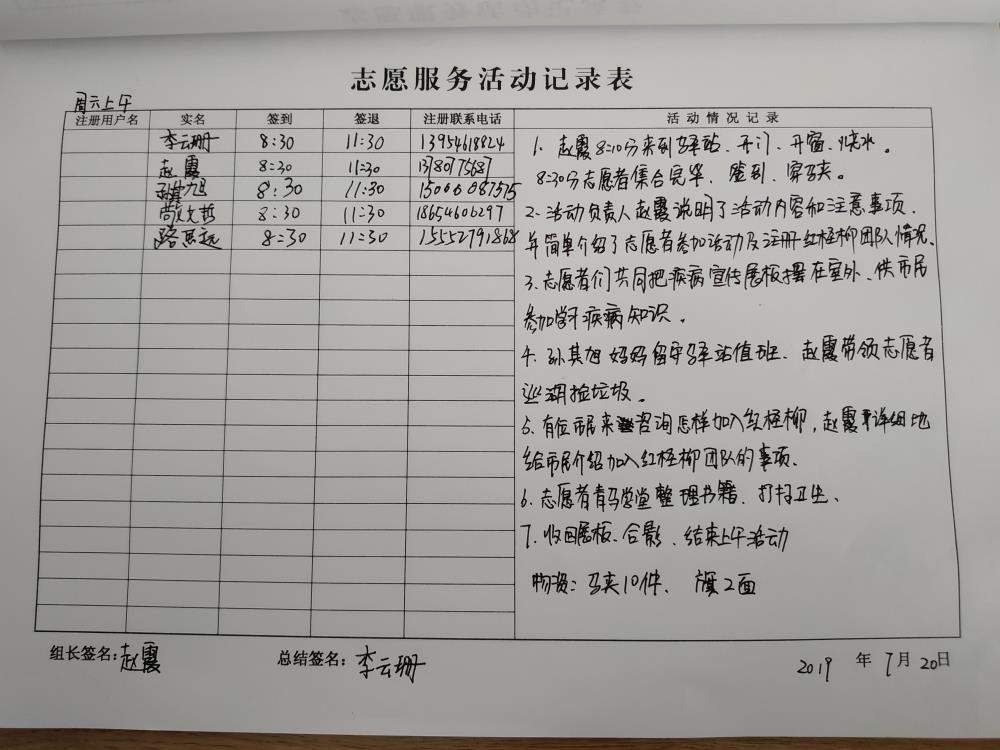 志愿服务活动记录表
周六上午
注册用户名 实名 签到 签退 注册联系电话 活动情况记录
李云珊 8:30 11:30 13954618824
赵霞 8:30 11:30 13780775687
8:30 11:30 15006087515
8:30 11:30 18654606297
路 远 8:30 11:30 15552791868
1. 赵霞8:10分来到驿站、开门、开窗、烧水。
8:30分志愿者集合完毕、签到、穿马夹。
2. 活动负责人赵霞说明了活动内容和注意事项.
并简单介绍了志愿者参加活动及注册红柽柳团队情况.
3. 志愿者们共同把疾病宣传展板摆在室外、供市民
参加学习疾病知识。
4. 孙其旭妈妈留守驿站值班、赵霞带领志愿者
巡湖捡垃圾。
5. 有位市民来咨询怎样加入红柽柳,赵霞详细地
给市民介绍加入红柽柳团队的事项.
6. 志愿者青马学堂整理书籍、打扫卫生、
7. 收回展板、合影、结束上午活动
物资: 马夹10件、 旗2面
组长签名:赵霞 总结签名:李云珊 2019年7月20日